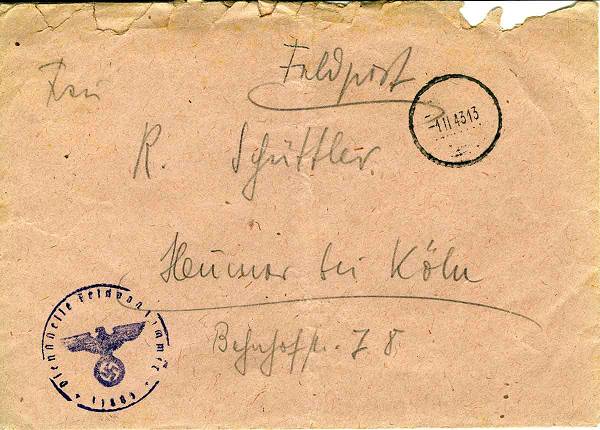 Feldpost
Frau
-1 11 43 13
R. Schüttler.
Heumar bei Köln
Bahnhofstr. 78
Dienststelle Feldpostnummer